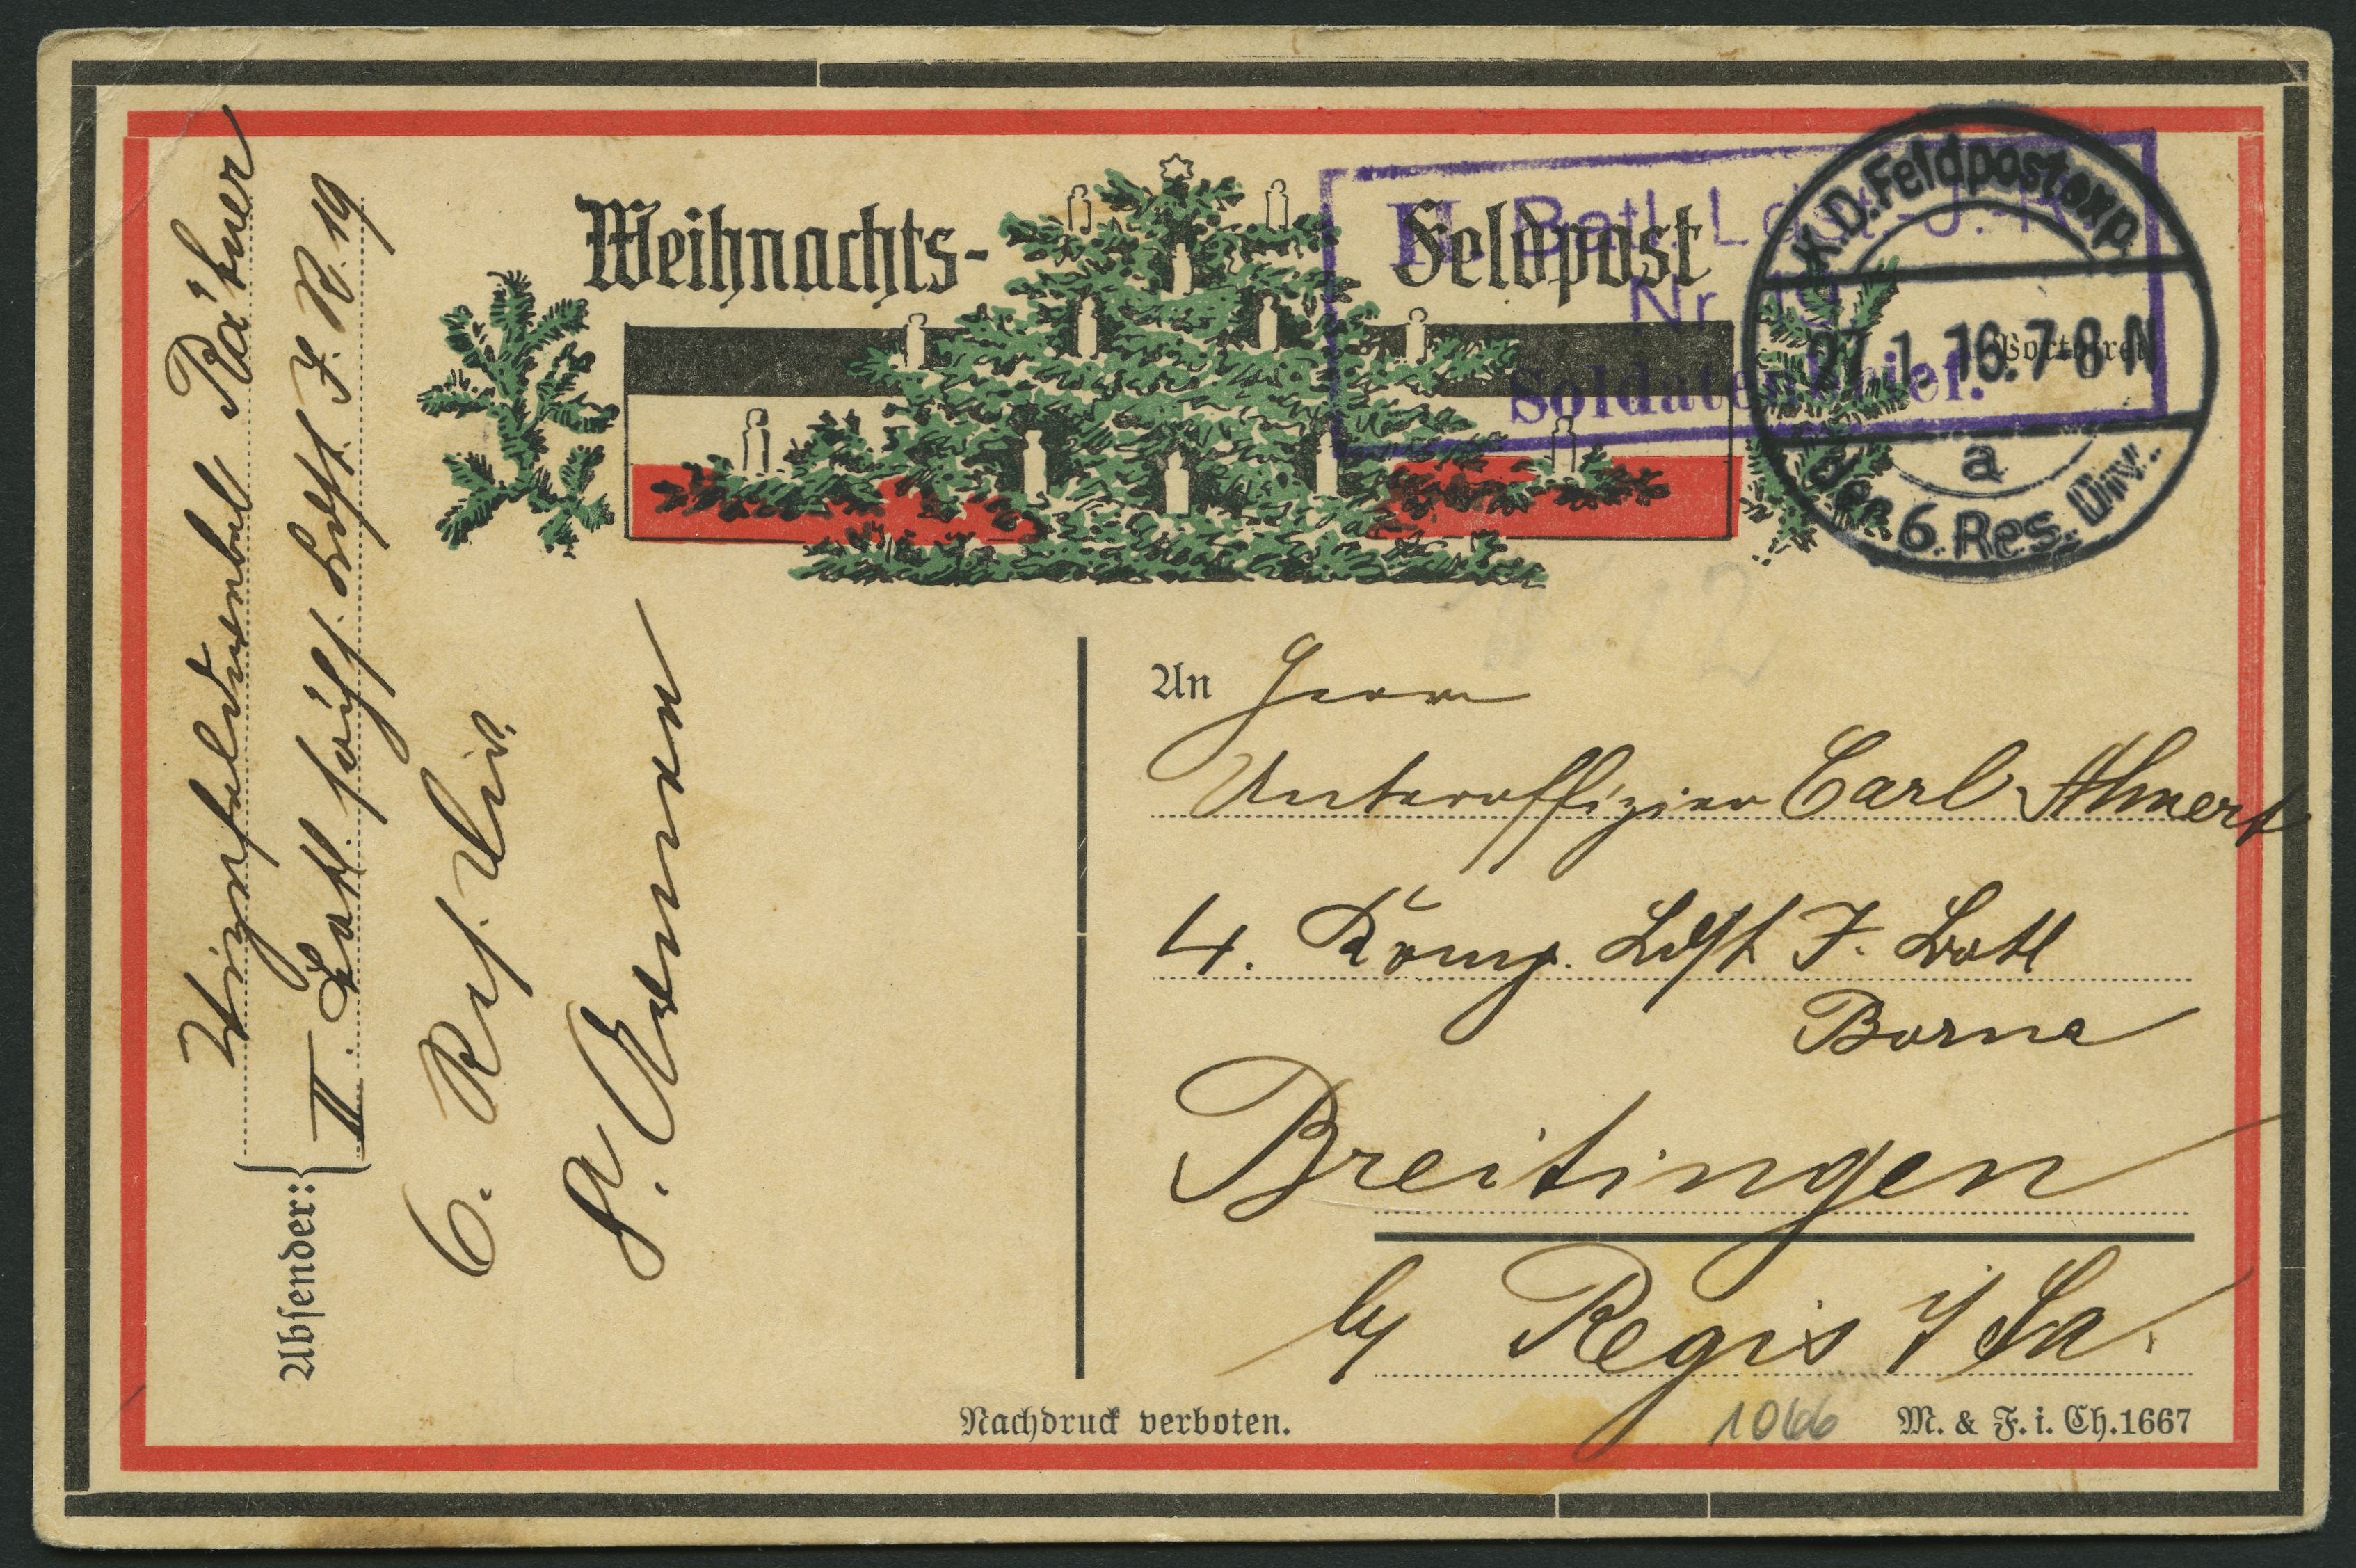 Weihnachts- Feldpost
II. Batl. Ldst.-J.-R.
Nr. 19
Soldatenbrief.
K.D.Feldpostexp.
27.1.16.7-8N
a
der 6. Res. Div.
Portofrei
Absender:
Vizefeldwebel
II. Batl. sächs. Ldst. J. R. 19
6. Res. Div.
An Herrn
Unteroffizier Carl Ahnert
4. Komp. Ldst J. Batl
Borna
Breitingen
b/ Regis i/ Sa.
Nachdruck verboten.
1066
M. & F. i. Ch. 1667